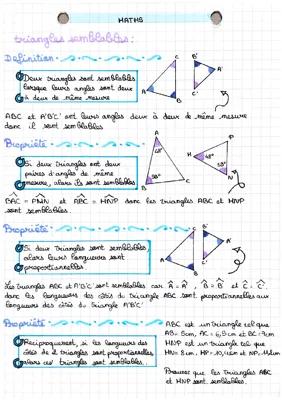 MATHS
triangles semblables :
Definition
Deux triangles sont semblables
lorsque leurs angles sont deux
à deux de même mesure
A
B
C
B'
A'
C'
ABC et A'B'C' ont leurs angles deux à deux de même mesure
donc il sont semblables
Propriété
Si deux triangles ont deux
paires d'angles de même
mesure, alors ils sont semblables
A
48°
58°
B
C
H
48°
P
58°
N
BAC = PHN et ABC = HNP donc les triangles ABC et HNP
sont semblables.
Propriété
Si deux triangles sont semblables,
alors leurs longueurs sont
proportionnelles.
A
B
C
B'
A'
C'
Les triangles ABC et A'B'C' sont semblables car Â = Â', B̂ = B̂' et Ĉ = Ĉ'.
donc les longueurs des côtés du triangle ABC sont proportionnelles aux
longueurs des côtés du triangle A'B'C'
Propriété
Réciproquement, si les longueurs des
côtés de 2 triangles sont proportionnelles
alors ces triangles sont semblables.
ABC est un triangle tel que
et BC =
HNP est un triangle tel que
HN = 8cm,
Prouver que les triangles ABC
et HNP sont semblables.